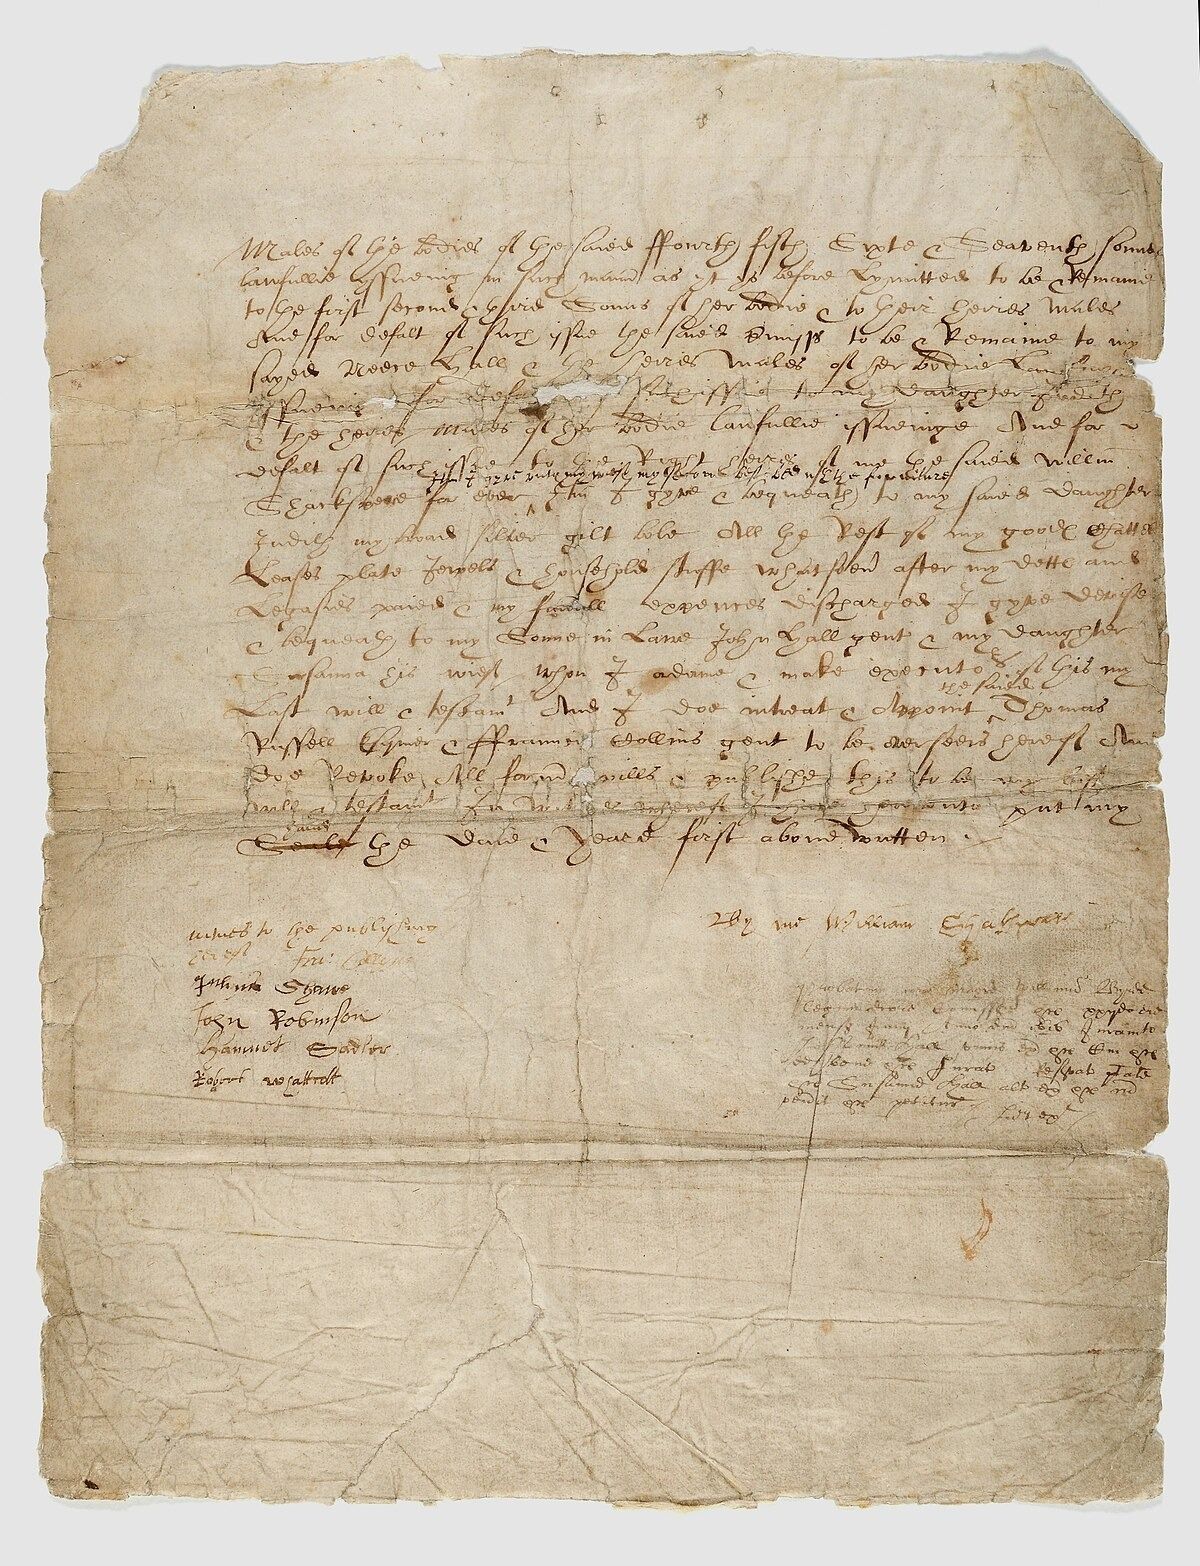 Males of the bodies of the saied ffourth fifth Sixte & Seaventh sonnes
lawfullie yssueing in such manner as yt ys before Lymitted to be & Remaine
to the first second & third Sonns of her bodie & to their heires Males
And for defalt of such issue the saied premisses to be & Remaine to my
sayed Neece Hall & the heires Males of her bodie Lawfullie
yssueing for defalt of such issue to my daughter Judith
& the heires Males of her bodie lawfullie issueinge And for
defalt of such issue to the Right heires of me the saied Willm
Itm I gyve unto my wief my second best bed with the furniture
Shackspere for ever Itm I gyve & bequeath to my saied daughter
Judith my broad silver gilt bole All the Rest of my goodes Chattels
Leases plate Jewels & houshold stuffe whatsoever after my dettes and
Legasies paied & my funerall expences discharged I gyve devise
& bequeath to my Sonne in Lawe John Hall gent & my daughter
Susanna his wief whom I ordaine & make executors of this my
the saied
Last will & testamt And I doe intreat & Appoint Thomas
Russell Esquier & ffrauncis Collins gent to be overseers hereof And
doe Revoke All former wills & publishe this to be my last
will & testamt In witnes whereof I have hereunto put my
hand
Seale the Daie & Yeare first above written.
witnes to the publishing
hereof Fra: Collins
Julyus Shawe
John Robinson
Hamnet Sadler
Robert Whattcott
By me William Shakspeare